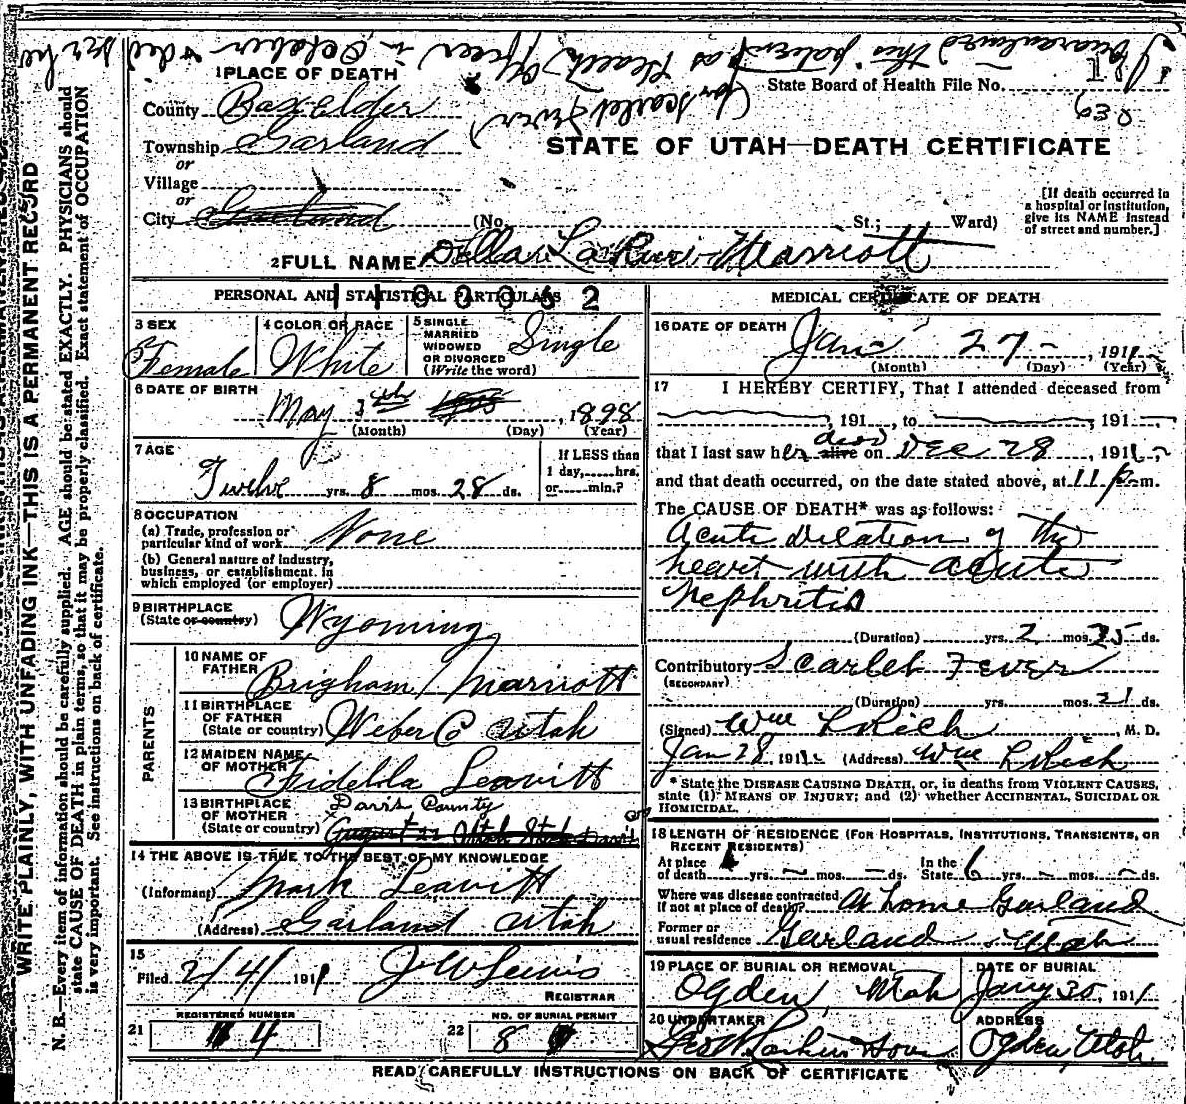 I quarantined this patient as Health Officer in October & died
(for Scarlet Fever)
1 PLACE OF DEATH
State Board of Health File No.
County Box Elder
Township Garland
or
Village
or
City
(No. St.; Ward)
STATE OF UTAH—DEATH CERTIFICATE
[If death occurred in
a hospital or institution,
give its NAME instead
of street and number.]
2 FULL NAME Marriott
PERSONAL AND STATISTICAL PARTICULARS
3 SEX
Female
4 COLOR OR RACE
White
5 SINGLE
MARRIED
WIDOWED
OR DIVORCED
(Write the word)
Single
6 DATE OF BIRTH
May 3 , 1898
(Month) (Day) (Year)
7 AGE
Twelve yrs. 8 mos. 28 ds.
If LESS than
1 day,......hrs.
or......min.?
8 OCCUPATION
(a) Trade, profession or
particular kind of work None
(b) General nature of industry,
business, or establishment in
which employed (or employer)
9 BIRTHPLACE
(State or country) Wyoming
PARENTS
10 NAME OF
FATHER Brigham Marriott
11 BIRTHPLACE
OF FATHER
(State or country) Weber Co Utah
12 MAIDEN NAME
OF MOTHER Fidella Leavitt
13 BIRTHPLACE
OF MOTHER
(State or country) Davis County
14 THE ABOVE IS TRUE TO THE BEST OF MY KNOWLEDGE
(Informant) Mark Leavitt
(Address) Garland Utah
15
Filed 2/4/ 1911 J W Lewis
REGISTRAR
21 REGISTERED NUMBER
4
22 NO. OF BURIAL PERMIT
8
MEDICAL CERTIFICATE OF DEATH
16 DATE OF DEATH
Jan 27 , 1911
(Month) (Day) (Year)
17 I HEREBY CERTIFY, That I attended deceased from
, 191 , to , 191
that I last saw her dead alive on Dec 28 , 1911
and that death occurred, on the date stated above, at 11 p. m.
The CAUSE OF DEATH* was as follows:
Acute dilation of the
heart with acute
Nephritis
(Duration) yrs. 2 mos. 25 ds.
Contributory Scarlet Fever
(SECONDARY)
(Duration) yrs. mos. 21 ds.
(Signed) Wm L Rich , M. D.
Jan 28 191 (Address) Wm L Rich
* State the DISEASE CAUSING DEATH, or, in deaths from VIOLENT CAUSES,
state (1) MEANS OF INJURY; and (2) whether ACCIDENTAL, SUICIDAL OR
HOMICIDAL.
18 LENGTH OF RESIDENCE (FOR HOSPITALS, INSTITUTIONS, TRANSIENTS, OR
RECENT RESIDENTS)
At place
of death yrs. mos. ds.
In the
State 6 yrs. mos. ds.
Where was disease contracted
If not at place of death? At home Garland
Former or
usual residence Garland Utah
19 PLACE OF BURIAL OR REMOVAL
Ogden, Utah
DATE OF BURIAL
Jany 30, 1911
20 UNDERTAKER
Larkin Sons
ADDRESS
Ogden, Utah.
READ CAREFULLY INSTRUCTIONS ON BACK OF CERTIFICATE
WRITE PLAINLY, WITH UNFADING INK—THIS IS A PERMANENT RECORD
N. B.—Every item of information should be carefully supplied. AGE should be stated EXACTLY. PHYSICIANS should
state CAUSE OF DEATH in plain terms, so that it may be properly classified. Exact statement of OCCUPATION
is very important. See instructions on back of certificate.